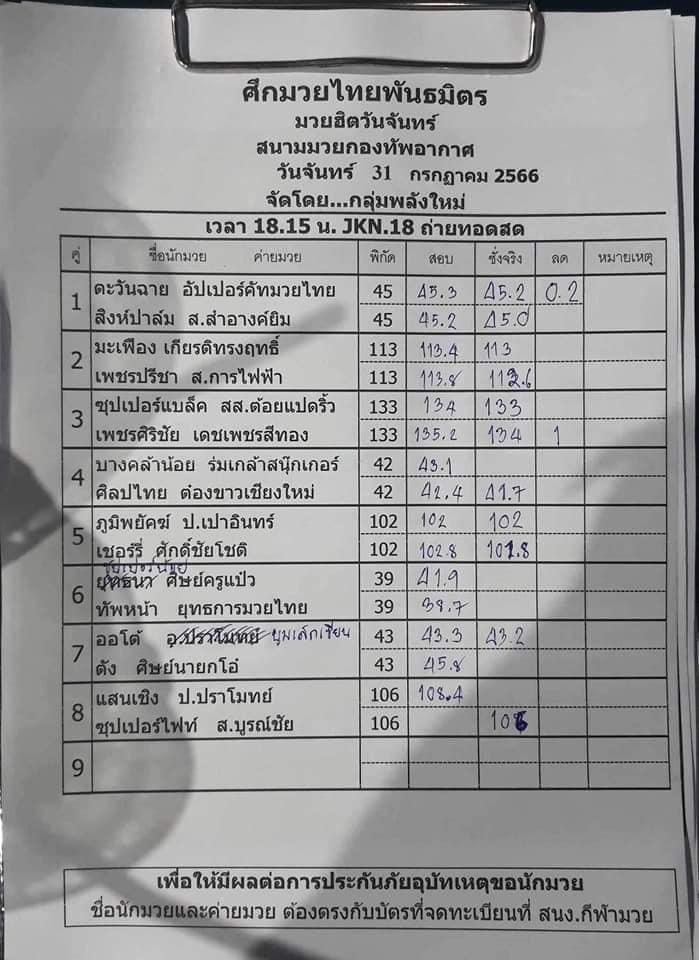 ศึกมวยไทยพันธมิตร
มวยฮิตวันจันทร์
สนามมวยกองทัพอากาศ
วันจันทร์ 31 กรกฎาคม 2566
จัดโดย...กลุ่มพลังใหม่
เวลา 18.15 น. JKN.18 ถ่ายทอดสด
คู่ ชื่อนักมวย ค่ายมวย พิกัด สอบ ชั่งจริง ลด หมายเหตุ
1 ตะวันฉาย อัปเปอร์คัทมวยไทย 45 45.3 45.2 0.2
สิงห์ปาล์ม ส.สำอางค์ยิม 45 45.2 45.0
2 มะเฟือง เกียรติทรงฤทธิ์ 113 113.4 113
เพชรปรีชา ส.การไฟฟ้า 113 113.8 112.6
3 ซุปเปอร์แบล็ค สส.ต้อยแปดริ้ว 133 134 133
เพชรศิริชัย เดชเพชรสีทอง 133 135.2 134 1
4 บางคล้าน้อย ร่มเกล้าสนุ๊กเกอร์ 42 43.1
ศิลปไทย ต๋องขาวเชียงใหม่ 42 42.4 41.7
5 ภูมิพยัคฆ์ ป.เปาอินทร์ 102 102 102
เชอร์รี่ ศักดิ์ชัยโชติ 102 102.8 101.8
6 ยุทธนา ศิษย์ครูแป๋ว 39 41.9
ทัพหน้า ยุทธการมวยไทย 39 38.7
7 ออโต้ อ.ปราโมทย์ 43 43.3 43.2
ตัง ศิษย์นายกโอ๋ 43 45.8
8 แสนเชิง ป.ปราโมทย์ 106 108.4
ซุปเปอร์ไฟท์ ส.บูรณ์ชัย 106 106
9
เพื่อให้มีผลต่อการประกันภัยอุบัทเหตุขอนักมวย
ชื่อนักมวยและค่ายมวย ต้องตรงกับบัตรที่จดทะเบียนที่ สนง.กีฬามวย